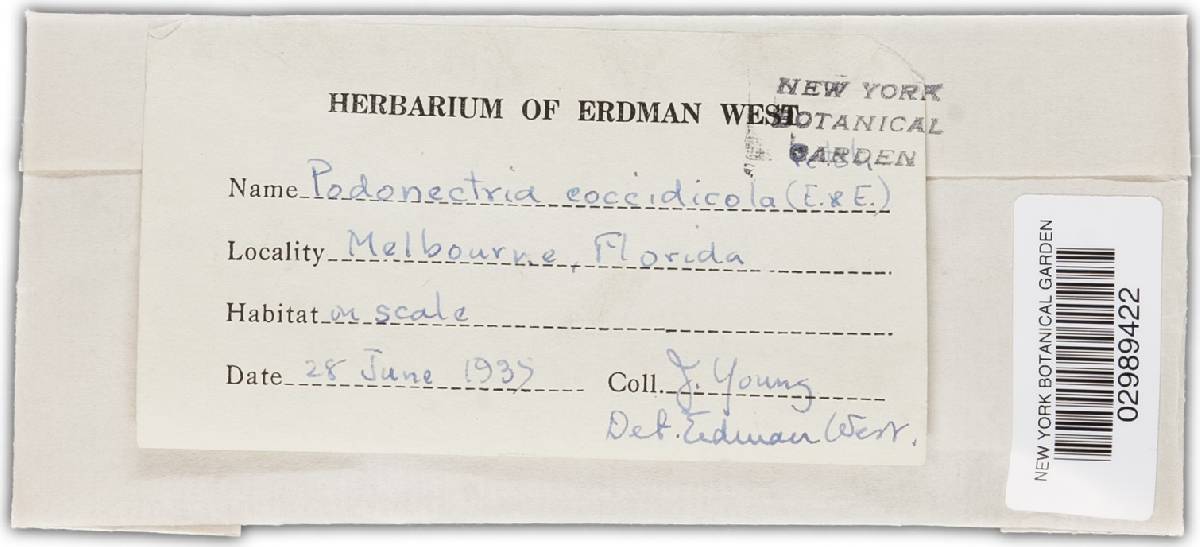 HERBARIUM OF ERDMAN WEST
NEW YORK
BOTANICAL
GARDEN
Petch
Name Podonectria coccidicola (E. & E.)
Locality Melbourne, Florida
Habitat on scale
Date 28 June 1937 Coll. J. Young
Det. Erdman West.
NEW YORK BOTANICAL GARDEN
02989422